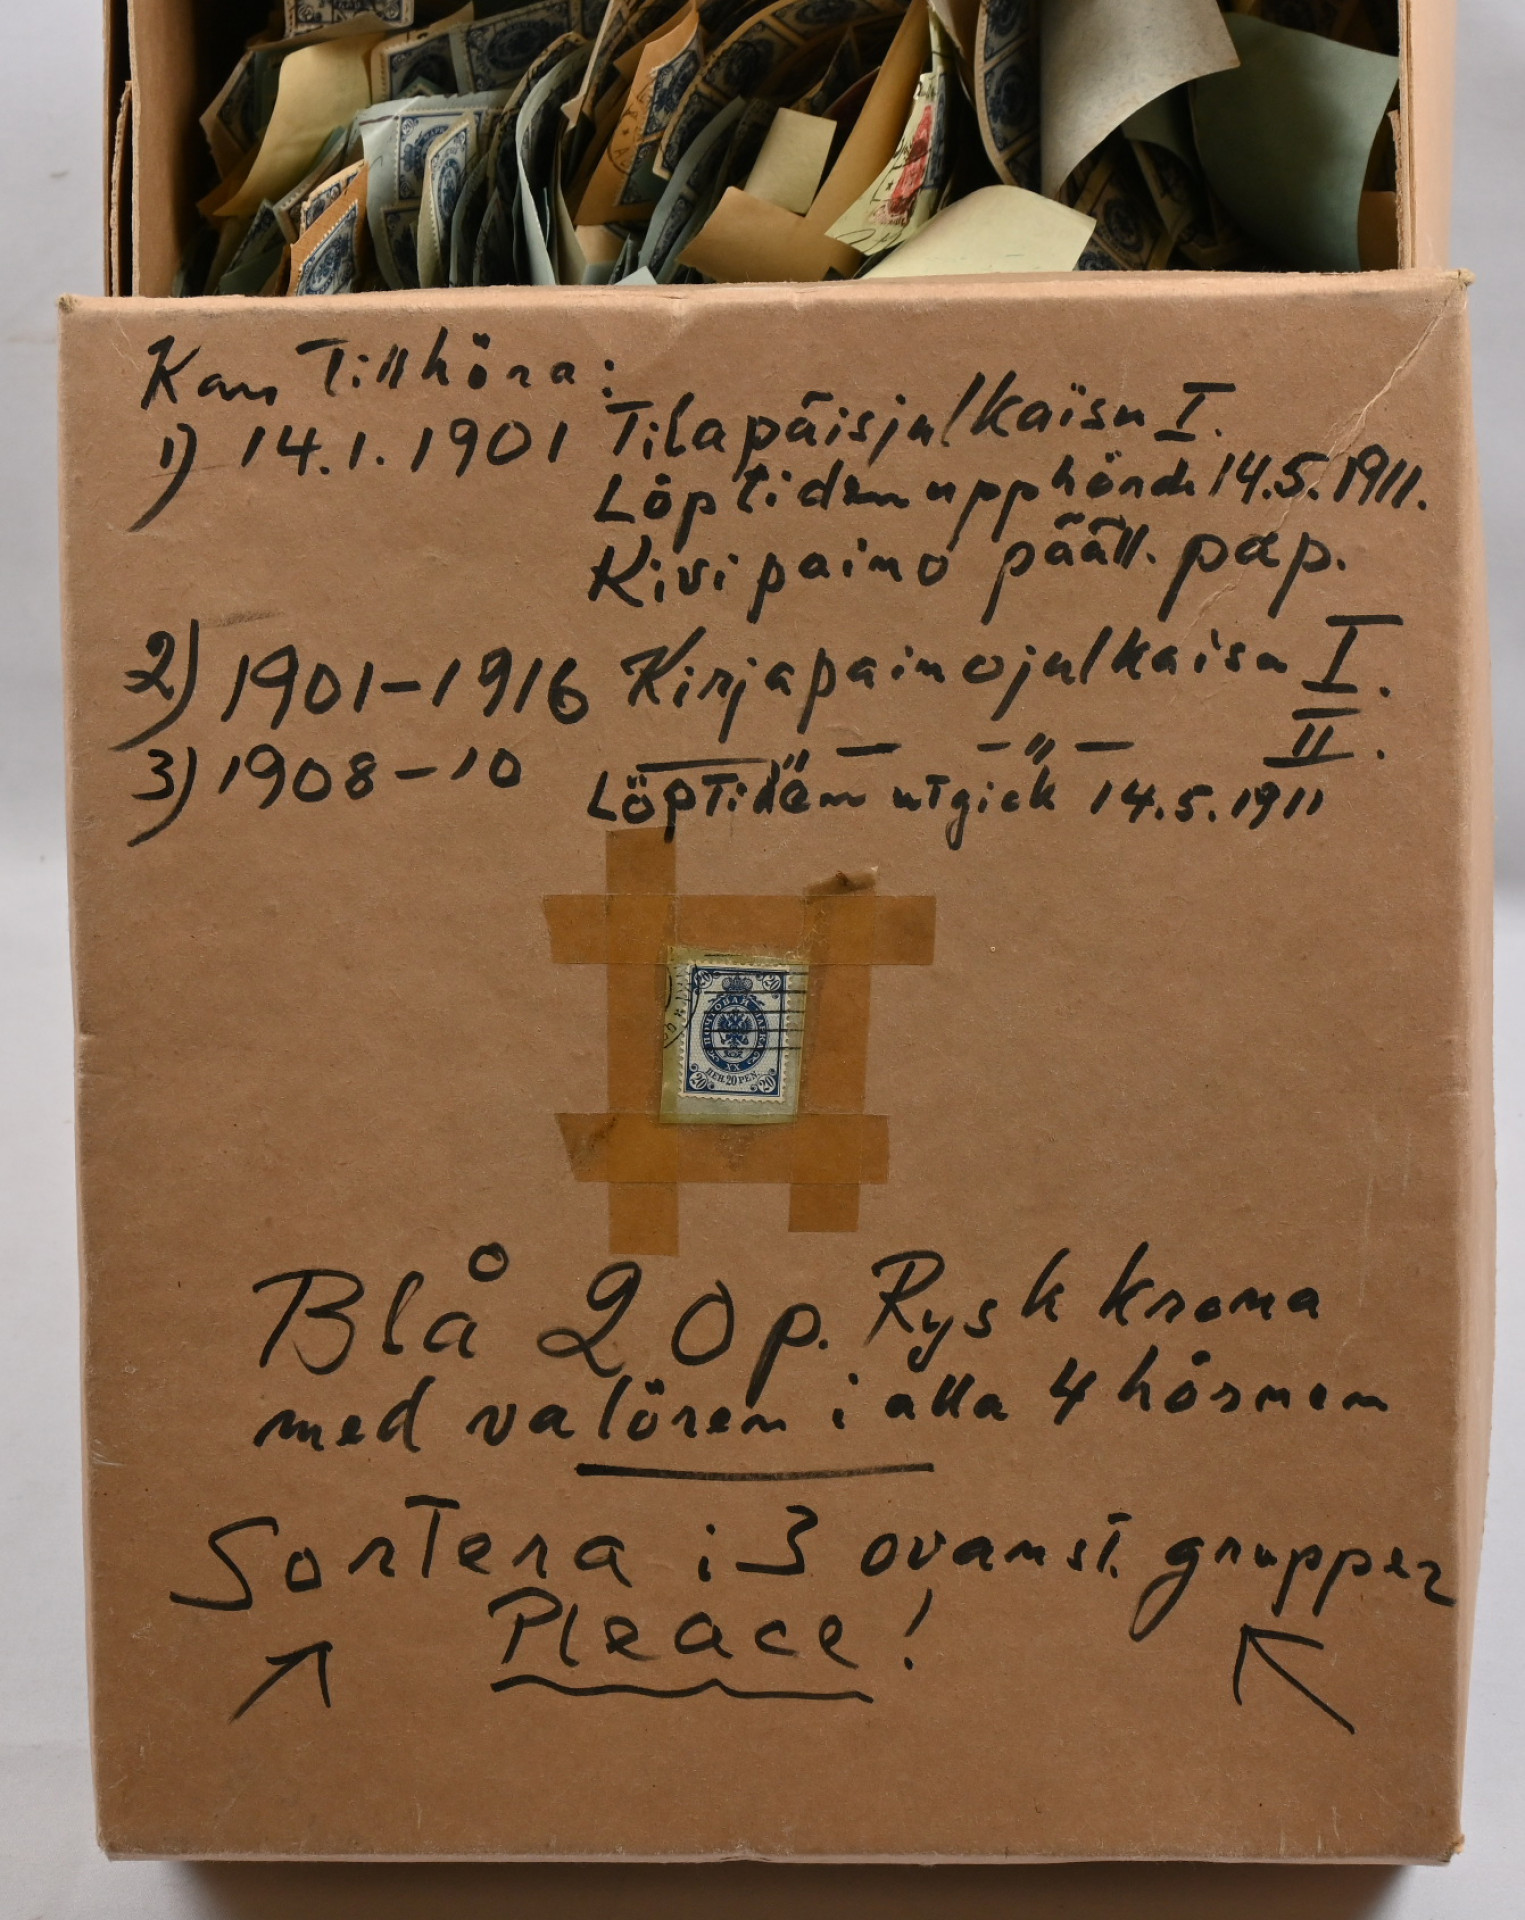 Kan Tillhöra:
1) 14.1.1901 Tilapäisjulkaisu I.
Löptiden upphörde 14.5.1911.
Kivipaino pääll. pap.
2) 1901-1916 Kirjapainojulkaisu I.
3) 1908-10 — " — — " — II.
Löptiden utgick 14.5.1911
20 20
ПОЧТОВАЯ МАРКА
XX
ПЕН. 20 PEN.
20 20
Blå 20 p. Rysk krona
med valören i alla 4 hörnen
Sortera i 3 ovanst. grupper
Pleace!